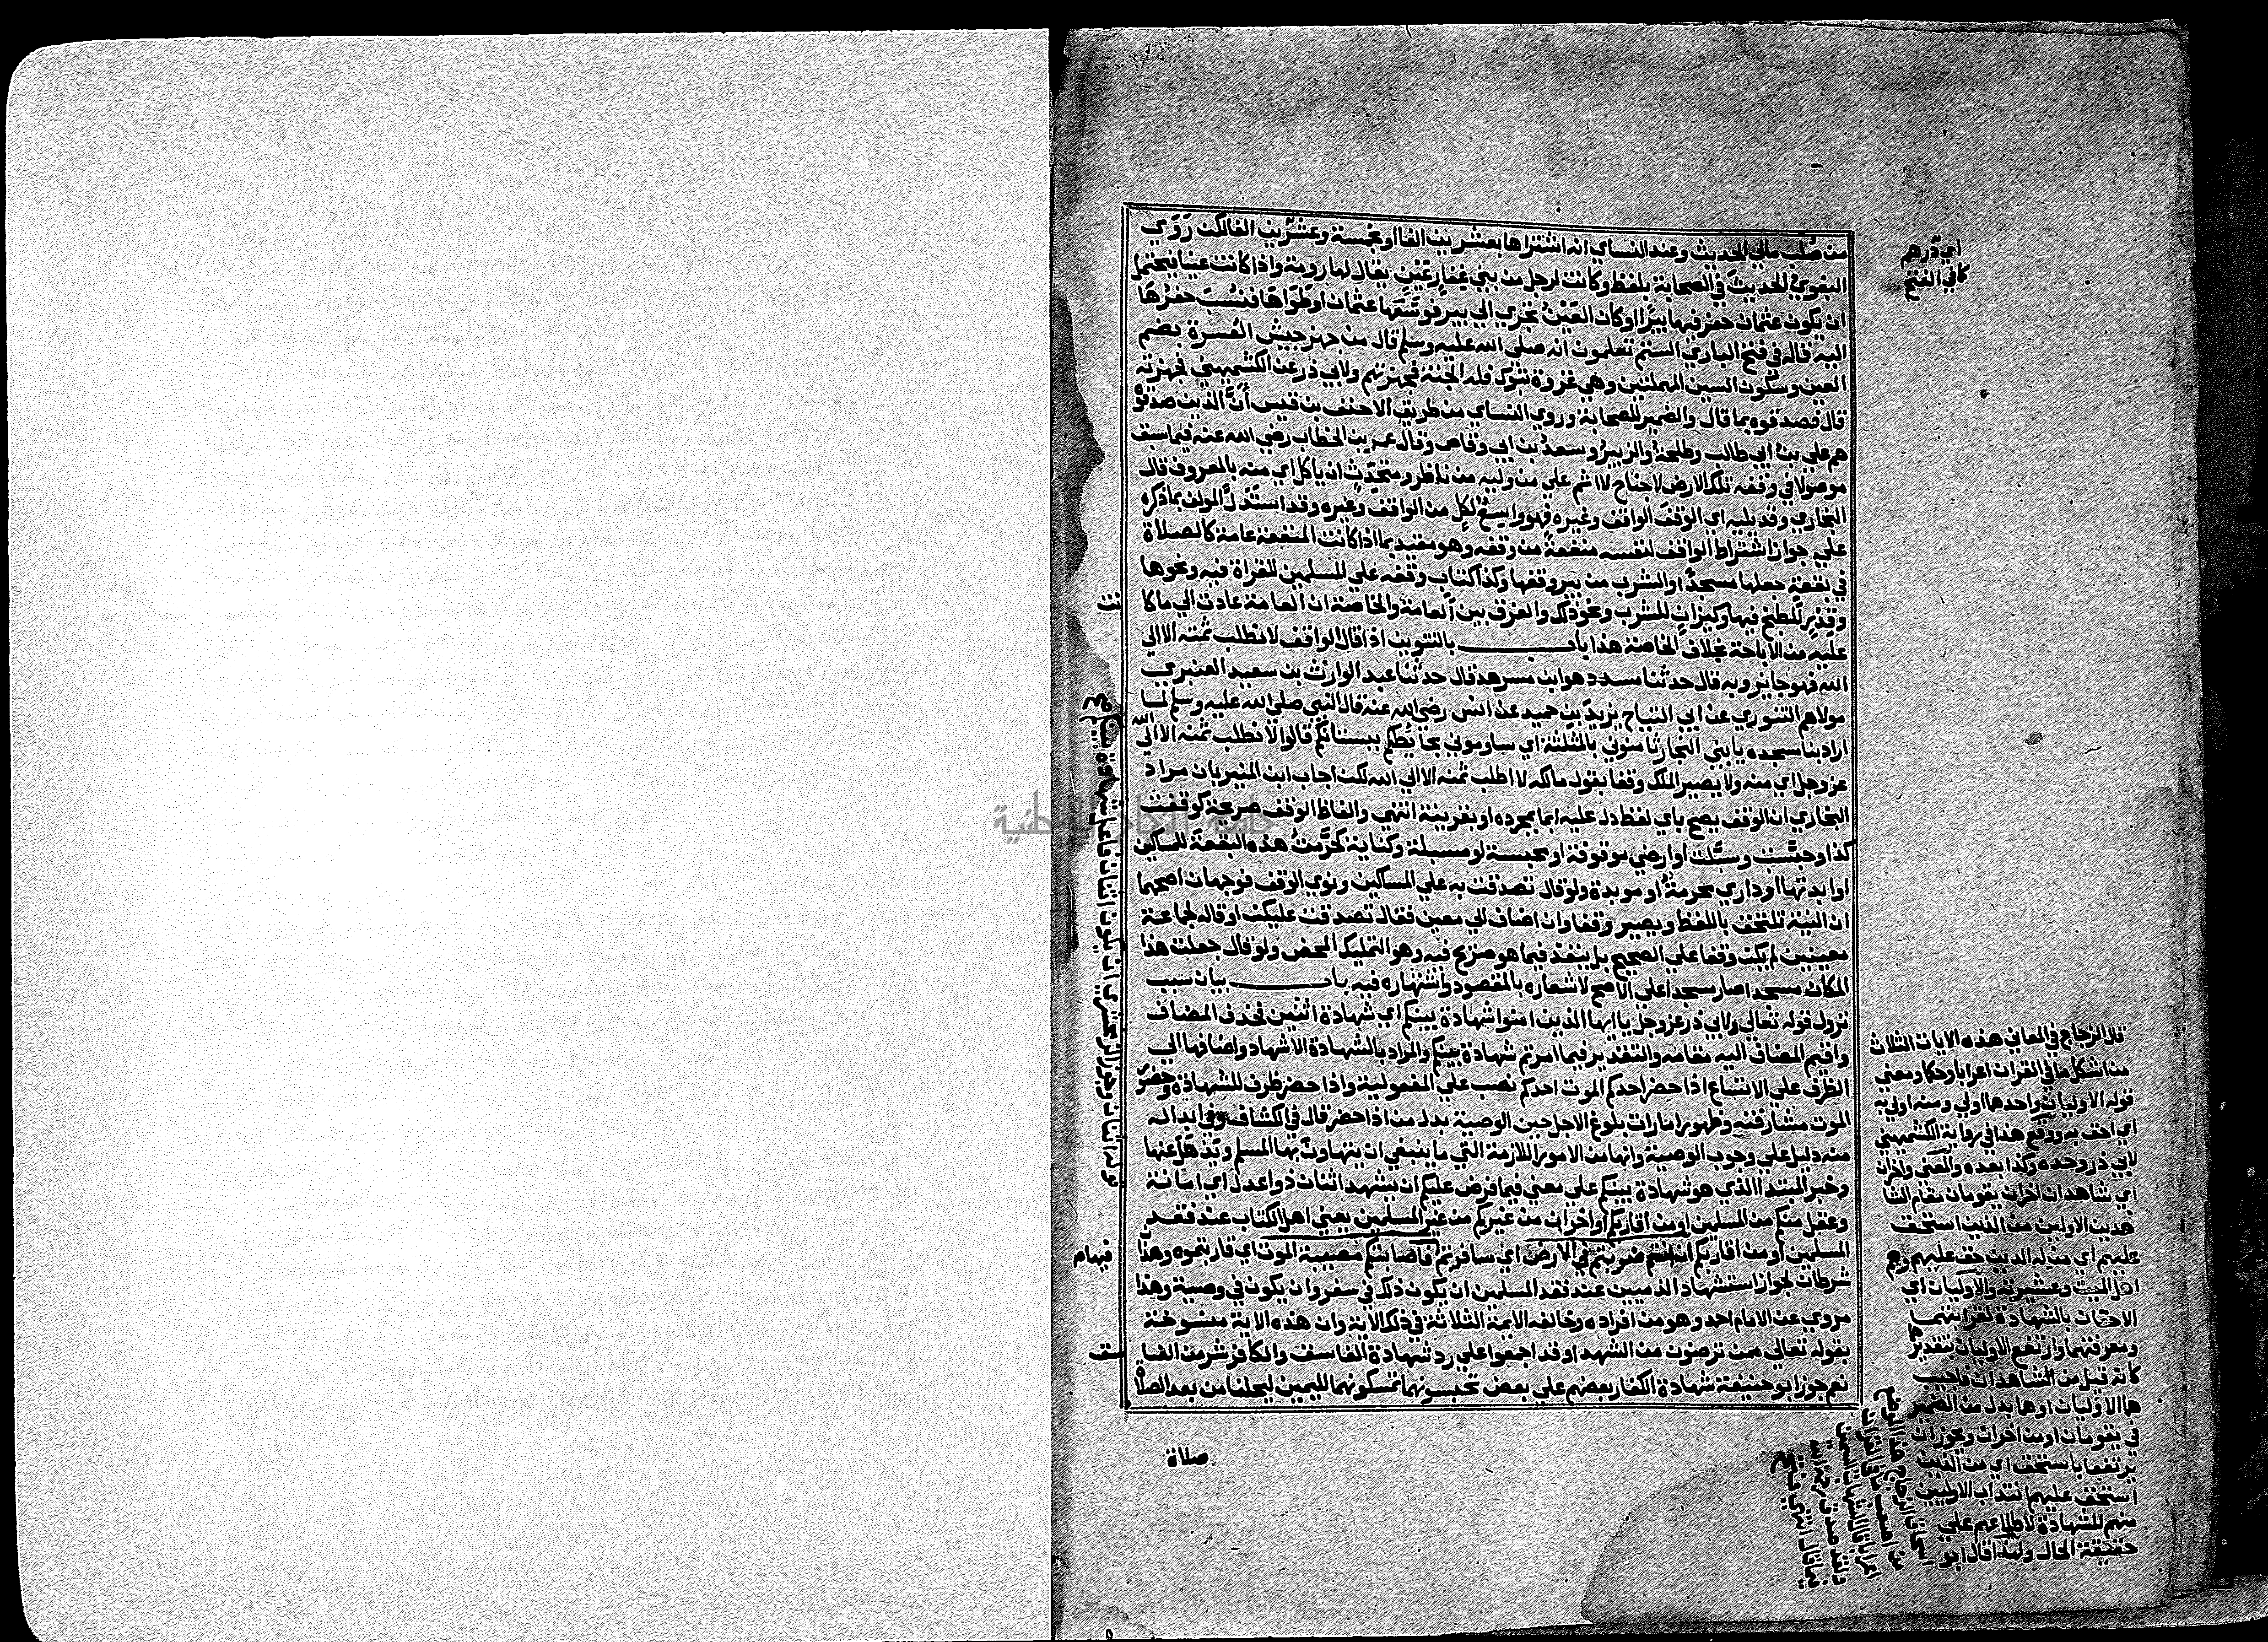 من صُلب مالي الحديث وعند النساي انه اشتراها بعشرين الفا او بخمسة وعشرين الفا لكن رَوَي
البغوي الحديث في الصحابة بلفظ وكانت لرجل من بني غِفار عَيْن يقال لها رومة واذا كانت عينا فيحتمل
ان يكون عثمان حفر فيها بيرا او كان العَيْنُ تجري الي بير فوسّعها عثمان او طَوَاهَا فنُسبَ حفرها
اليه قاله في فتح الباري الستم تعلمون انه صلي الله عليه وسلم قال من جهز جيش العُسرة بضم
العين وسكون السين المهملتين وهي غزوة تبوك فله الجنة فجهزتهم ولابي ذر عن الكشميهني فجهزته
قال فصدقوه بما قال والضمير للصحابة وروي النساي من طريق الاحنف بن قيس أنَّ الذين صدقوه
هم علي بن ابي طالب وطلحة والزبير وسعد بن ابي وقاص وقال عمر بن الخطاب رضي الله عنه فيما سبق
موصولا في وقفه تلك الارض لا جناح لا اثم علي من وليه من ناظر ومتحدّث ان ياكل اي منه بالمعروف قال
البخاري وقد يليه اي الوقف الواقف وغيره فهو واسعٌ لكلٍ من الواقف وغيره وقد استدلَّ المولف بما ذكره
علي جواز اشتراط الواقف لنفسه منفعةً من وقفه وهو مقيد بما اذا كانت المنفعة عامة كالصلاة
في بقعةٍ جعلها مسجدًا والشرب من بير وقفها وكذا كتاب وقفه علي المسلمين للقراة فيه ونحوها
وقِدْرٍ للطبخ فيها وكيزان للشرب ونحو ذلك والفرق بين العامة والخاصة ان العامة عادت الي ما كا
نت
عليه من الاباحة بخلاف الخاصة هذا باب بالتنوين اذا قال الواقف لا نطلب ثمنه الا الي
الله فهو جايز وبه قال حدثنا مسدد هو ابن مسرهد قال حدثنا عبد الوارث بن سعيد العنبري
مولاهم التنوري عن ابي التياح يزيد بن حميد عن انس رضي الله عنه قال النبي صلي الله عليه وسلم لما
اراد بنا مسجده يا بني النجار ثامنوني بالمثلثة اي ساوموني بحايطكم ببستانكم قالوا لا نطلب ثمنه الا الي الله
عز وجل اي منه ولا يصير الملك وقفا بقول مالكه لا اطلب ثمنه الا الي الله لكن اجاب ابن المنير بان مراد
البخاري ان الوقف يصح باي لفظ دل عليه اما بمجرده او بقرينة انتهي والفاظ الوقف صريحة كوقفت
كذا وحبَّست وسبَّلت او ارضي موقوفة او محبسة او مسبلة وكناية كحَرَّمتُ هذه البقعة للمساكين
او ابدتها او داري محرمةٌ او موبدة ولو قال تصدقت به علي المساكين ونوي الوقف فوجهان اصحهما
ان النية تلتحق باللفظ ويصير وقفا وان اضاف الي معين فقال تصدقت عليك او قاله لجماعة
معينين لم يكن وقفا علي الصحيح بل ينفذ فيما هو صريح فيه وهو التمليك المحض ولو قال جعلت هذا
المكان مسجدا صار مسجدا علي الاصح لاشعاره بالمقصود واشتهاره فيه باب بيان سبب
نزول قوله تعالي ولابي ذر عز وجل يا ايها الذين امنوا شهادة بينكم اي شهادة اثنين فحذف المضاف
واقيم المضاف اليه مقامه والتقدير فيما امرتم شهادة بينكم والمراد بالشهادة الاشهاد واضافها الي
الظرف علي الاتساع اذا حضر احدكم الموت احدكم نصب علي المفعولية واذا حضر ظرف للشهادة وحضور
الموت مشارفته وظهور امارات بلوغ الاجل حين الوصية بدل من اذا حضر قال في الكشاف وفي ابداله
منه دليل علي وجوب الوصية وانها من الامور اللازمة التي ما ينبغي ان يتهاون بها المسلم ويَذهَل عنها
وخبر المبتدا الذي هو شهادة بينكم علي معني فيما فرض عليكم ان يشهد اثنان ذوا عدل اي امانة
وعقل منكم من المسلمين او من اقاربكم او اخران من غيركم من غير المسلمين يعني اهل الكتاب عند فقد
المسلمين او من اقاربكم ان انتم ضربتم في الارض اي سافرتم فاصابتكم مصيبة الموت اي قاربتموه وهذا
شرطان لجواز استشهاد الذميين عند فقد المسلمين ان يكون ذلك في سفر وان يكون في وصية وهذا
مروي عن الامام احمد وهو من افراده وخالفه الايمة الثلاثة في ذلك الاية وان هذه الاية منسوخة
بقوله تعالي ممن ترضون من الشهدا وقد اجمعوا علي رد شهادة الفاسق والكافر شر من الفا
سق
نعم جوز ابو حنيفة شهادة الكفار بعضهم علي بعض تحبسونهما تمسكونهما لليمين ليحلفا من بعد الصلاة
صلاة
اي درهم
كما في الفتح
قال الزجاج في المعاني هذه الايات الثلاث
من اشكل ما في القران اعرابا وحكما ومعني
قوله الاوليان واحدهما اولي ومنه اولي به
اي احق به ووقع هذا في رواية الكشميهني
لابي ذر وحده وكذا بعده والمعني واخران
اي شاهدان اخران يقومان مقام الشا
هدين الاولين من الذين استحق
عليهم اي من الذين حق عليهم وهم
اهل الميت وعشيرته والاوليان اي
الاحقان بالشهادة لقرابتهما
ومعرفتهما وارتفع الاوليان بتقدير هما
كانه قيل من الشاهدان فاجيب
هما الاوليان او هما بدل من الضمير
في يقومان او من اخران ويجوز ان
يرتفعا باستحق اي من الذين
استحق عليهم انتداب الاوليين
منهم للشهادة لاطلاعهم علي
حقيقة الحال ولهذا قال ابو
جامعة النجاح الوطنية